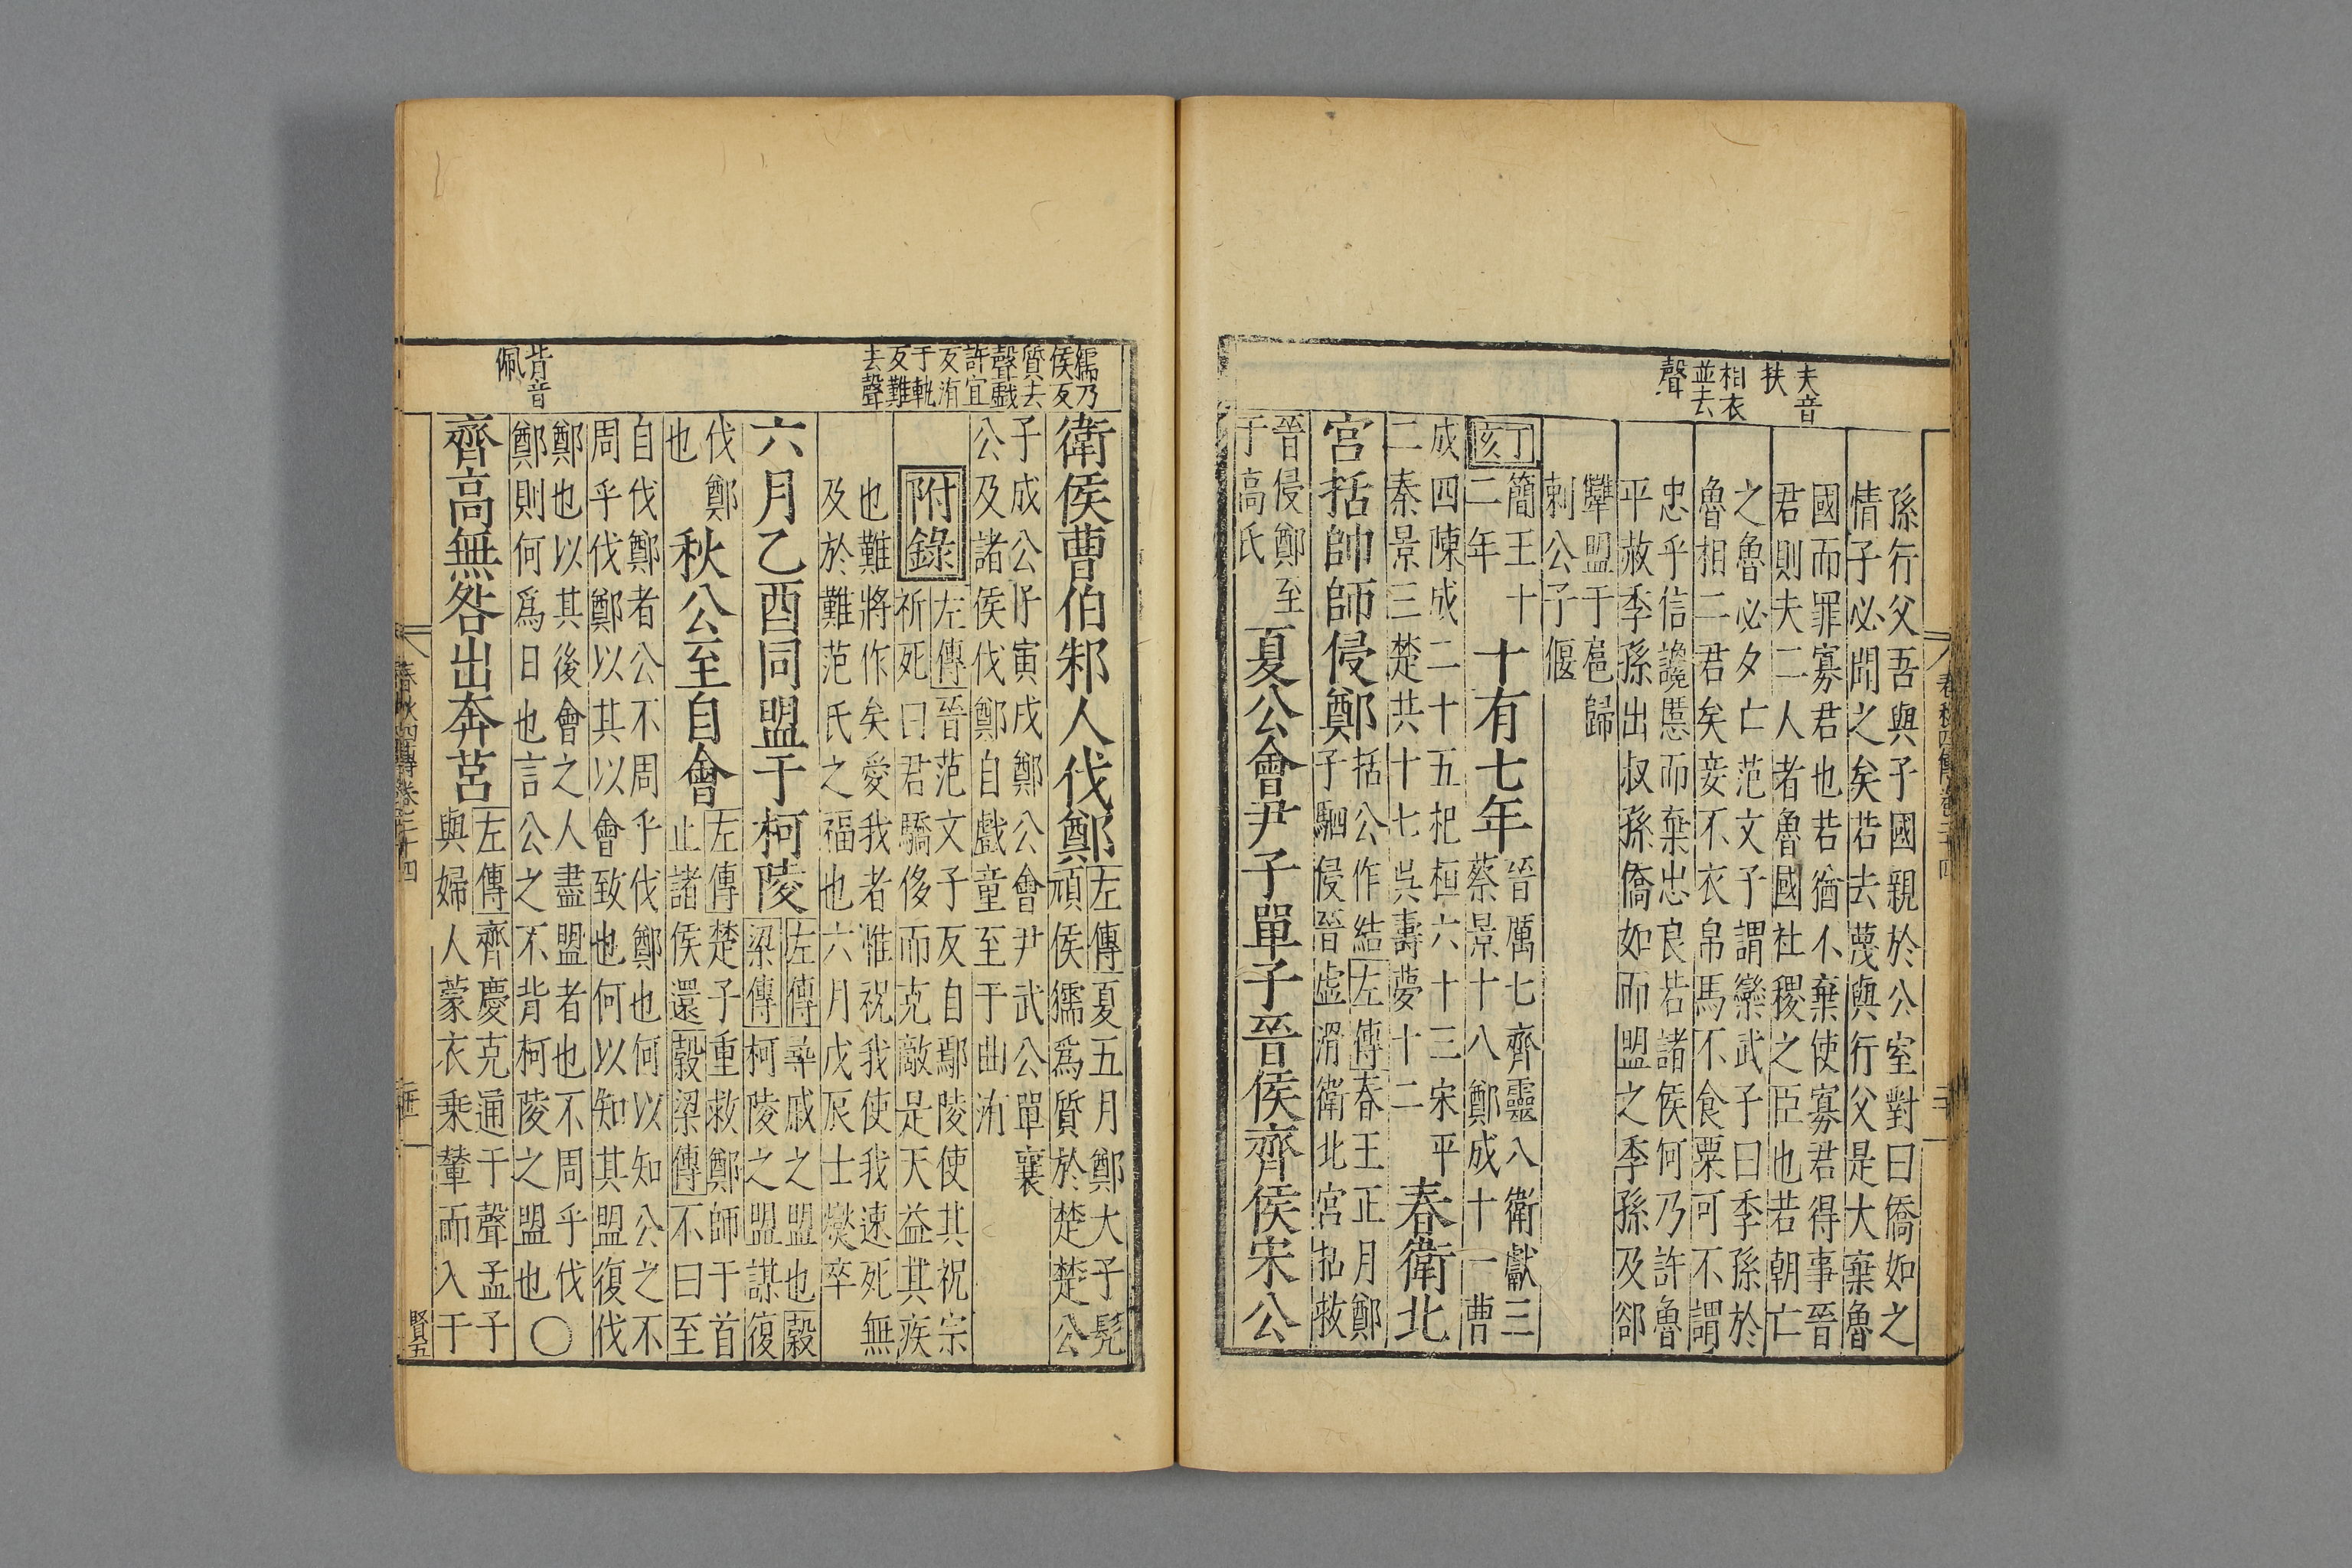 夫音
扶
相衣
並去
聲
孫行父吾與子國親於公室對曰僑如之
情子必聞之矣若去蔑與行父是大棄魯
國而罪寡君也若猶不棄使寡君得事晉
君則夫二人者魯國社稷之臣也若朝亡
之魯必夕亡范文子謂欒武子曰季孫於
魯相二君矣妾不衣帛馬不食粟可不謂
忠乎信讒慝而棄忠良若諸侯何乃許魯
平赦季孫出叔孫僑如而盟之季孫及郤
犨盟于扈歸
刺公子偃
丁亥
簡王十
二年
十有七年
晉厲七齊靈八衛獻三
蔡景十八鄭成十一曹
成四陳成二十五杞桓六十三宋平
二秦景三楚共十七吳壽夢十二
春衛北
宮括帥師侵鄭
括公作結左傳春王正月鄭
子駟侵晉虛滑衛北宮括救
晉侵鄭至
于高氏
夏公會尹子單子晉侯齊侯宋公
春秋四傳卷二十四
獳乃
侯反
質去
聲戲
許宜
反洧
于軌
反難
去聲
背音
佩
衛侯曹伯邾人伐鄭
左傳夏五月鄭大子髡
頑侯獳爲質於楚楚公
子成公子寅戍鄭公會尹武公單襄
公及諸侯伐鄭自戲童至于曲洧
附錄
左傳晉范文子反自鄢陵使其祝宗
祈死曰君驕侈而克敵是天益其疾
也難將作矣愛我者惟祝我使我速死無
及於難范氏之福也六月戊辰士燮卒
六月乙酉同盟于柯陵
左傳尋戚之盟也穀
梁傳柯陵之盟謀復
伐鄭
也
秋公至自會
左傳楚子重救鄭師于首
止諸侯還穀梁傳不曰至
自伐鄭者公不周乎伐鄭也何以知公之不
周乎伐鄭以其以會致也何以知其盟復伐
鄭也以其後會之人盡盟者也不周乎伐
鄭則何爲日也言公之不背柯陵之盟也○
齊高無咎出奔莒
左傳齊慶克通于聲孟子
與婦人蒙衣乘輦而入于
春秋四傳卷二十四
賢五